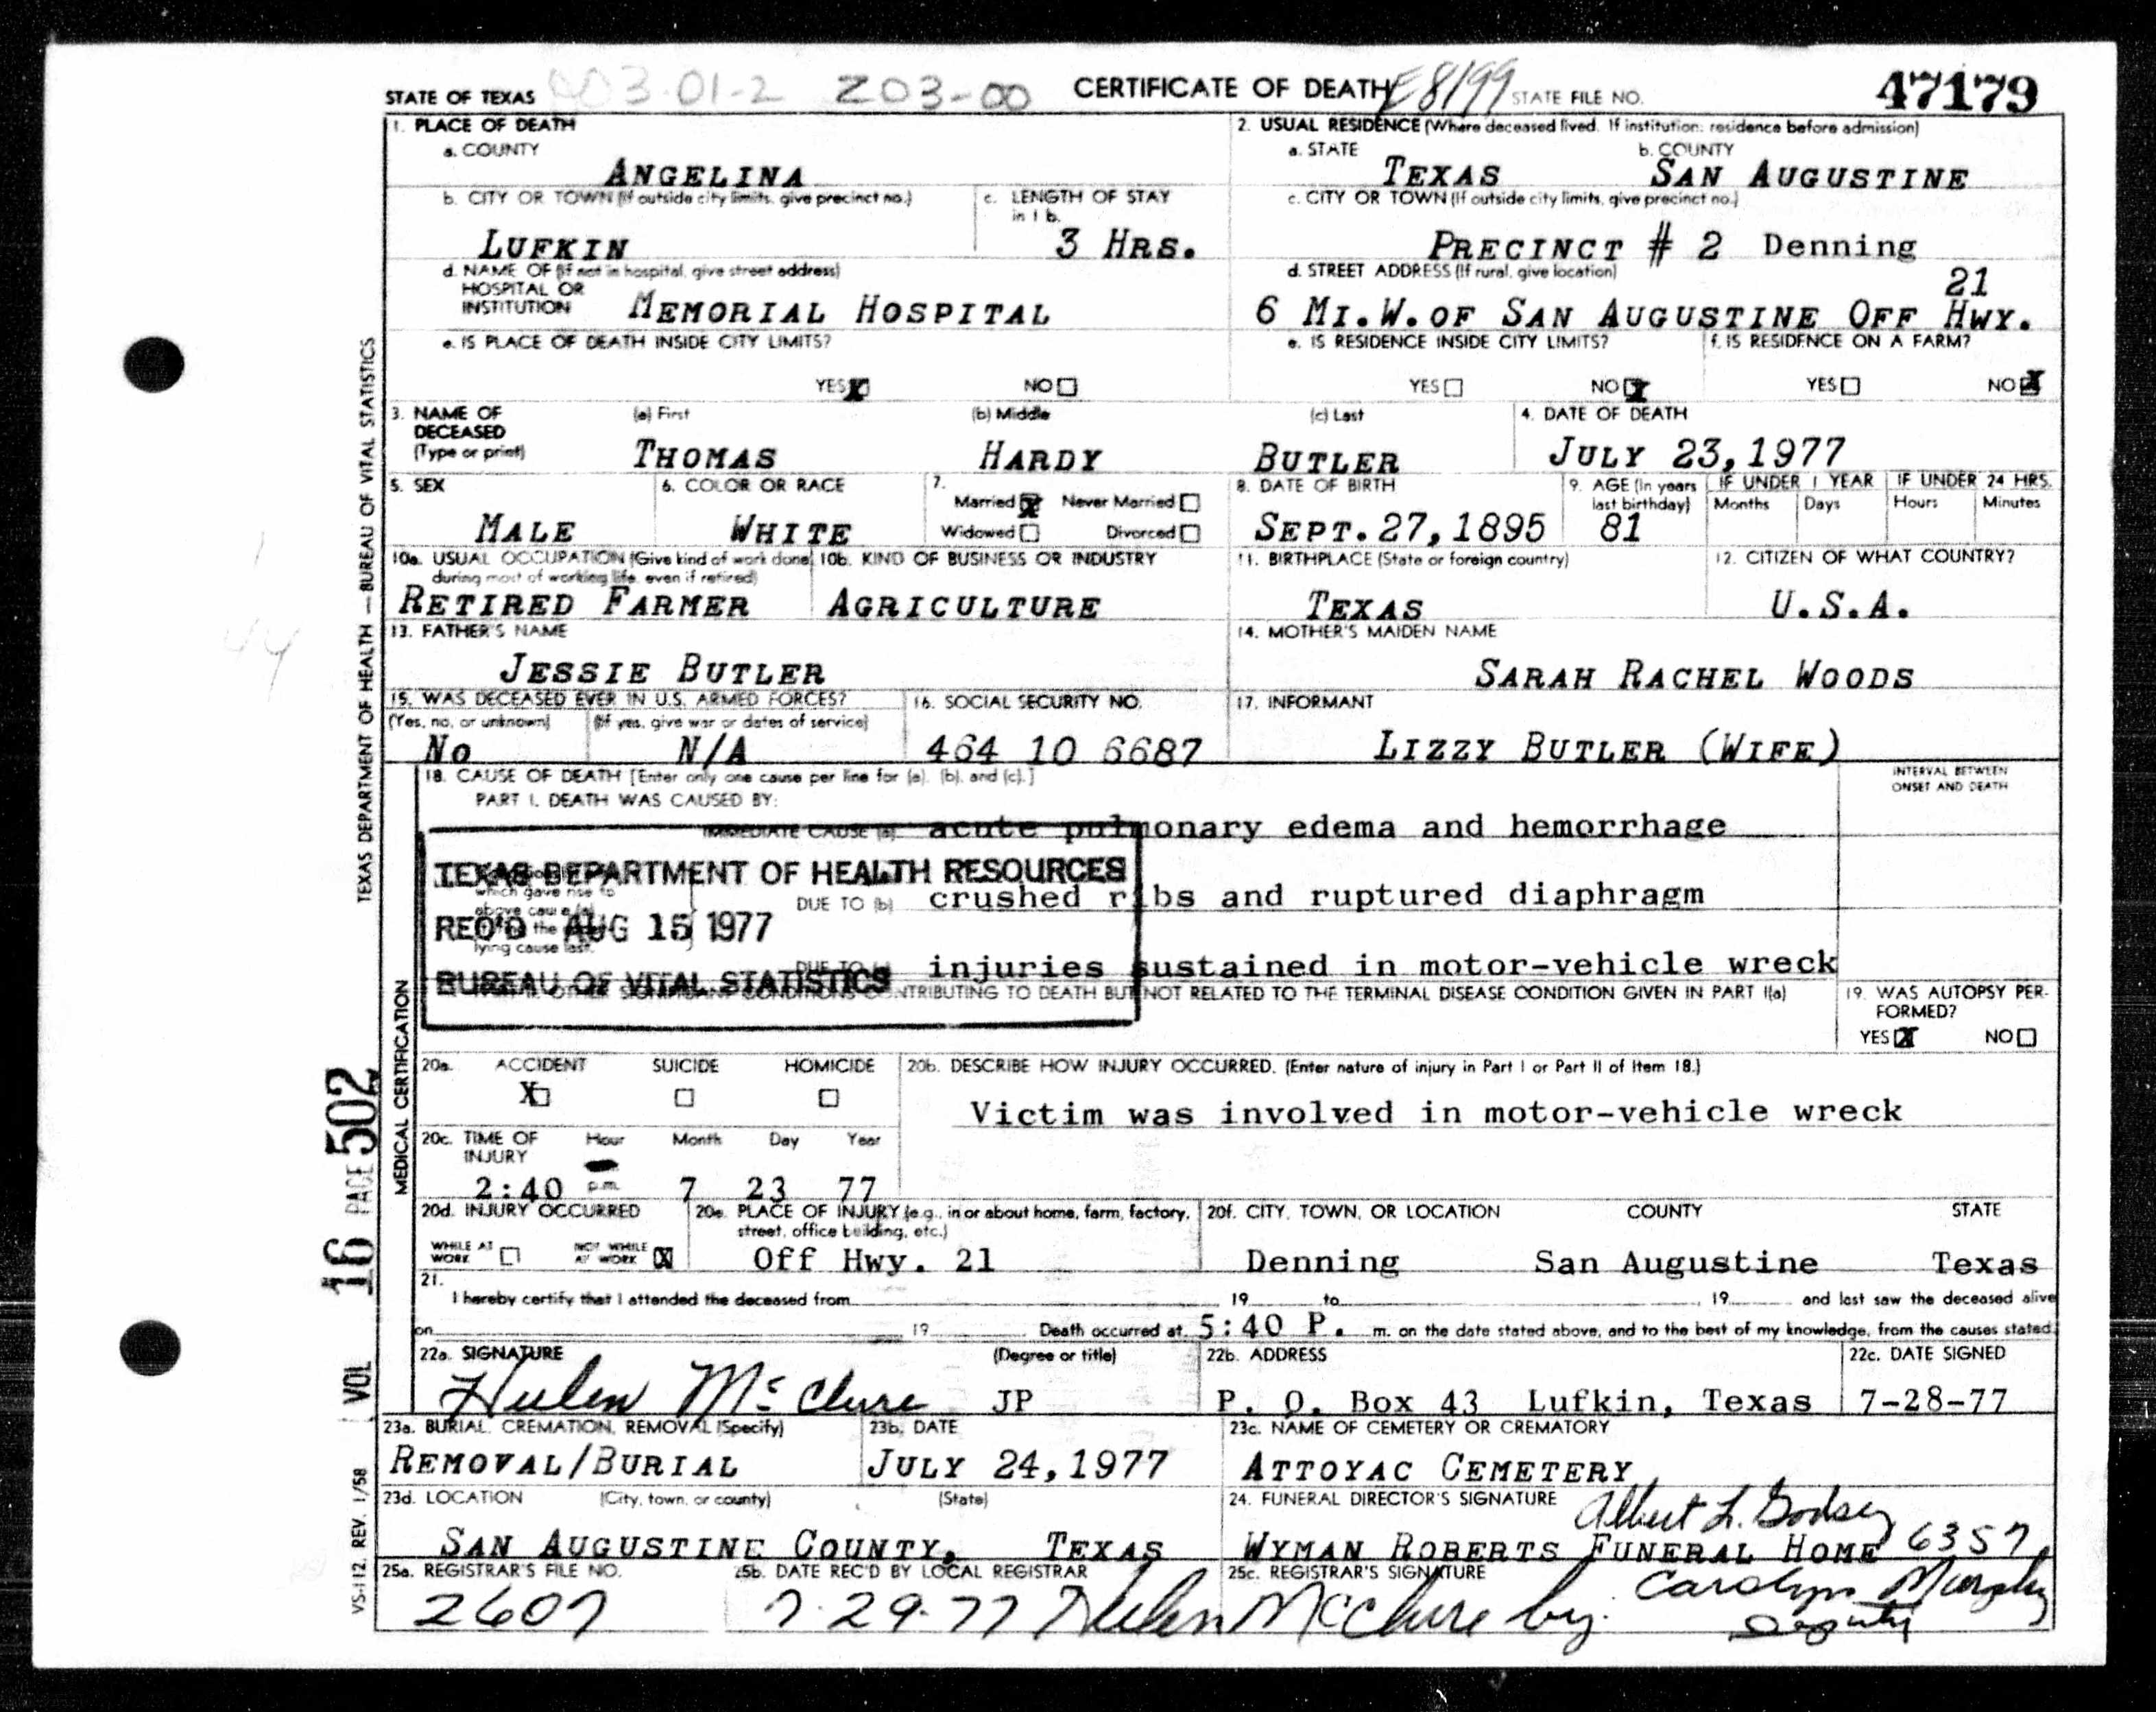 STATE OF TEXAS 203-00 CERTIFICATE OF DEATH E8199 STATE FILE NO. 47179
1. PLACE OF DEATH
a. COUNTY
ANGELINA
b. CITY OR TOWN (If outside city limits, give precinct no.) c. LENGTH OF STAY in 1 b.
LUFKIN 3 HRS.
d. NAME OF (If not in hospital, give street address) HOSPITAL OR INSTITUTION
MEMORIAL HOSPITAL
e. IS PLACE OF DEATH INSIDE CITY LIMITS?
YES X NO
2. USUAL RESIDENCE (Where deceased lived. If institution: residence before admission)
a. STATE b. COUNTY
TEXAS SAN AUGUSTINE
c. CITY OR TOWN (If outside city limits, give precinct no.)
PRECINCT # 2 Denning
d. STREET ADDRESS (If rural, give location)
21
6 MI.W.OF SAN AUGUSTINE OFF HWY.
e. IS RESIDENCE INSIDE CITY LIMITS? f. IS RESIDENCE ON A FARM?
YES NO X YES NO X
3. NAME OF DECEASED (Type or print) (a) First (b) Middle (c) Last 4. DATE OF DEATH
THOMAS HARDY BUTLER JULY 23,1977
5. SEX 6. COLOR OR RACE 7. Married X Never Married Widowed Divorced 8. DATE OF BIRTH 9. AGE (In years last birthday) IF UNDER 1 YEAR Months Days IF UNDER 24 HRS. Hours Minutes
MALE WHITE SEPT.27,1895 81
10a. USUAL OCCUPATION (Give kind of work done during most of working life, even if retired) 10b. KIND OF BUSINESS OR INDUSTRY 11. BIRTHPLACE (State or foreign country) 12. CITIZEN OF WHAT COUNTRY?
RETIRED FARMER AGRICULTURE TEXAS U.S.A.
13. FATHER'S NAME 14. MOTHER'S MAIDEN NAME
JESSIE BUTLER SARAH RACHEL WOODS
15. WAS DECEASED EVER IN U.S. ARMED FORCES? 16. SOCIAL SECURITY NO. 17. INFORMANT
(Yes, no, or unknown) (If yes, give war or dates of service)
No N/A 464 10 6687 LIZZY BUTLER (WIFE)
18. CAUSE OF DEATH [Enter only one cause per line for (a), (b), and (c).] INTERVAL BETWEEN ONSET AND DEATH
PART I. DEATH WAS CAUSED BY:
IMMEDIATE CAUSE (a) acute pulmonary edema and hemorrhage
TEXAS DEPARTMENT OF HEALTH RESOURCES
which gave rise to
above cause (a)
DUE TO (b) crushed ribs and ruptured diaphragm
REC'D AUG 15 1977
lying cause last.
DUE TO injuries sustained in motor-vehicle wreck
BUREAU OF VITAL STATISTICS
OTHER SIGNIFICANT CONDITIONS CONTRIBUTING TO DEATH BUT NOT RELATED TO THE TERMINAL DISEASE CONDITION GIVEN IN PART I(a) 19. WAS AUTOPSY PERFORMED?
YES X NO
20a. ACCIDENT SUICIDE HOMICIDE 20b. DESCRIBE HOW INJURY OCCURRED. (Enter nature of injury in Part I or Part II of Item 18.)
X Victim was involved in motor-vehicle wreck
20c. TIME OF INJURY Hour Month Day Year
2:40 p.m. 7 23 77
20d. INJURY OCCURRED 20e. PLACE OF INJURY (e.g., in or about home, farm, factory, street, office building, etc.) 20f. CITY, TOWN, OR LOCATION COUNTY STATE
WHILE AT WORK NOT WHILE AT WORK X Off Hwy. 21 Denning San Augustine Texas
21.
I hereby certify that I attended the deceased from 19 to , 19 and last saw the deceased alive
on 19 Death occurred at 5:40 P. m. on the date stated above, and to the best of my knowledge, from the causes stated.
22a. SIGNATURE (Degree or title) 22b. ADDRESS 22c. DATE SIGNED
Helen McClure JP P. O. Box 43 Lufkin, Texas 7-28-77
23a. BURIAL, CREMATION, REMOVAL (Specify) 23b. DATE 23c. NAME OF CEMETERY OR CREMATORY
REMOVAL/BURIAL JULY 24,1977 ATTOYAC CEMETERY
23d. LOCATION (City, town, or county) (State) 24. FUNERAL DIRECTOR'S SIGNATURE Albert L. Godsey
SAN AUGUSTINE COUNTY, TEXAS WYMAN ROBERTS FUNERAL HOME 6357
25a. REGISTRAR'S FILE NO. 25b. DATE REC'D BY LOCAL REGISTRAR 25c. REGISTRAR'S SIGNATURE
2607 7-29-77 Helen McClure by: Carolyn Murphy
Deputy
TEXAS DEPARTMENT OF HEALTH — BUREAU OF VITAL STATISTICS
MEDICAL CERTIFICATION
VOL 16 PAGE 502
VS-112 REV. 1/58
44